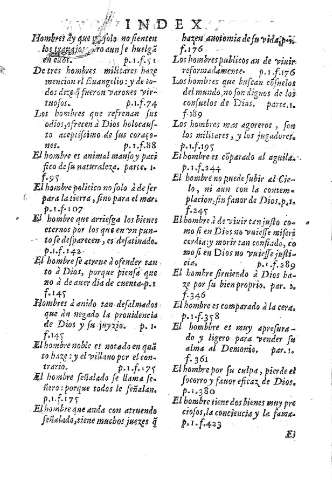 INDEX
Hombres ay que no solo no sienten
los trabajos, pero aun se huelgã
en ellos. p.1.f.51
De tres hombres militares haze
mencion el Euangelio: y de to-
dos dize q̃ fueron varones vir-
tuosos. p.1.f.74
Los hombres que refrenan sus
odios, ofrecen à Dios holocaus-
to aceptissimo de sus coraço-
nes. p.1.f.88
El hombre es animal manso y paci
fico de su naturaleza. parte. 1.
f.95
El hombre politico no solo à de ser
para la tierra, sino para el mar.
p.1.f.107
El hombre que arriesga los bienes
eternos por los que en vn pun-
to desparecen, es desatinado.
p.1.f.142
El hombre se atreue à ofender tan
to à Dios, porque piensa que
no à de auer dia de cuenta. p.1
f.145
Hombres à auido tan desalmados
que àn negado la prouidencia
de Dios y su juyzio. p. 1.
f.145
El hombre noble es notado en quã
to haze: y al villano por el con-
trario. p.1.f.175
El hombre señalado se llama se-
ñero: porque todos le señalan.
p.1.f.175
El hombre que anda con atruendo
señalado, tiene muchos juezes q̃
hazen anotomia de su vida. p.1.
f.176
Los hombres publicos an de viuir
reformadamente. p.1.f.176
Los hombres que buscan cõsuelos
del mundo, no son dignos de los
consuelos de Dios. parte. 1.
f.189
Los hombres mas agoreros, son
los militares, y los jugadores.
p.1.f.195
El hombre es cõparado al aguila.
p.1.f.244
El hombre no puede subir al Cie-
lo, ni aun con la contem-
placion: sin fauor de Dios. p.1.
f.245
El hombre à de viuir tan justo co-
mo si en Dios no vuiesse miseri
cordia: y morir tan confiado, co
mo si en Dios no vuiesse justi-
cia. p.1.f.289
El hombre siruiendo à Dios ha-
ze por su bien proprio. par. 1.
f.346
El hombre es comparado à la cera.
p.1.f.358
El hombre es muy apresura-
do y ligero para vender su
alma al Demonio. par. 1.
f.361
El hombre por su culpa, pierde el
socorro y fauor eficaz de Dios.
p.1.380
El hombre tiene dos bienes muy pre
ciosos, la conciencia y la fama.
p.1.f.423
El